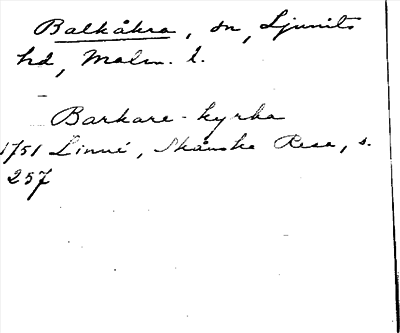 Balkåkra, sn, Ljunits
hd, Malm. l.
Barkare-kyrka
1751 Linné, Skånska Resa, s.
257